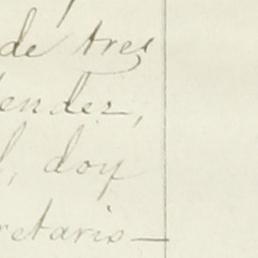 de tres
endez,
l, doy
retario—